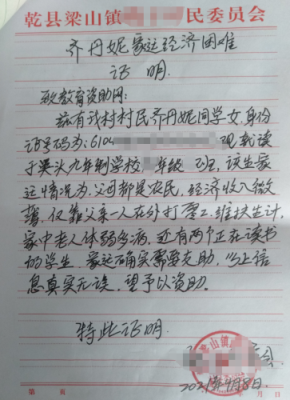 乾县梁山镇 民委员会
齐丹妮家庭经济困难
证明
致教育资助网：
兹有我村村民齐丹妮同学女身份
证号码为：6104 现就读
于 头九年制学校 年级 班，该生家
庭情况为：父母都是农民，经济收入微
薄，仅靠父亲一人在外打零工维扶生计，
家中老人体弱多病，还有两个正在读书
的学生。家庭确实需要支助，以上信
息真实无误，望予以资助。
特此证明
梁山镇 会
2021年9月8日
第 页 年 月 日